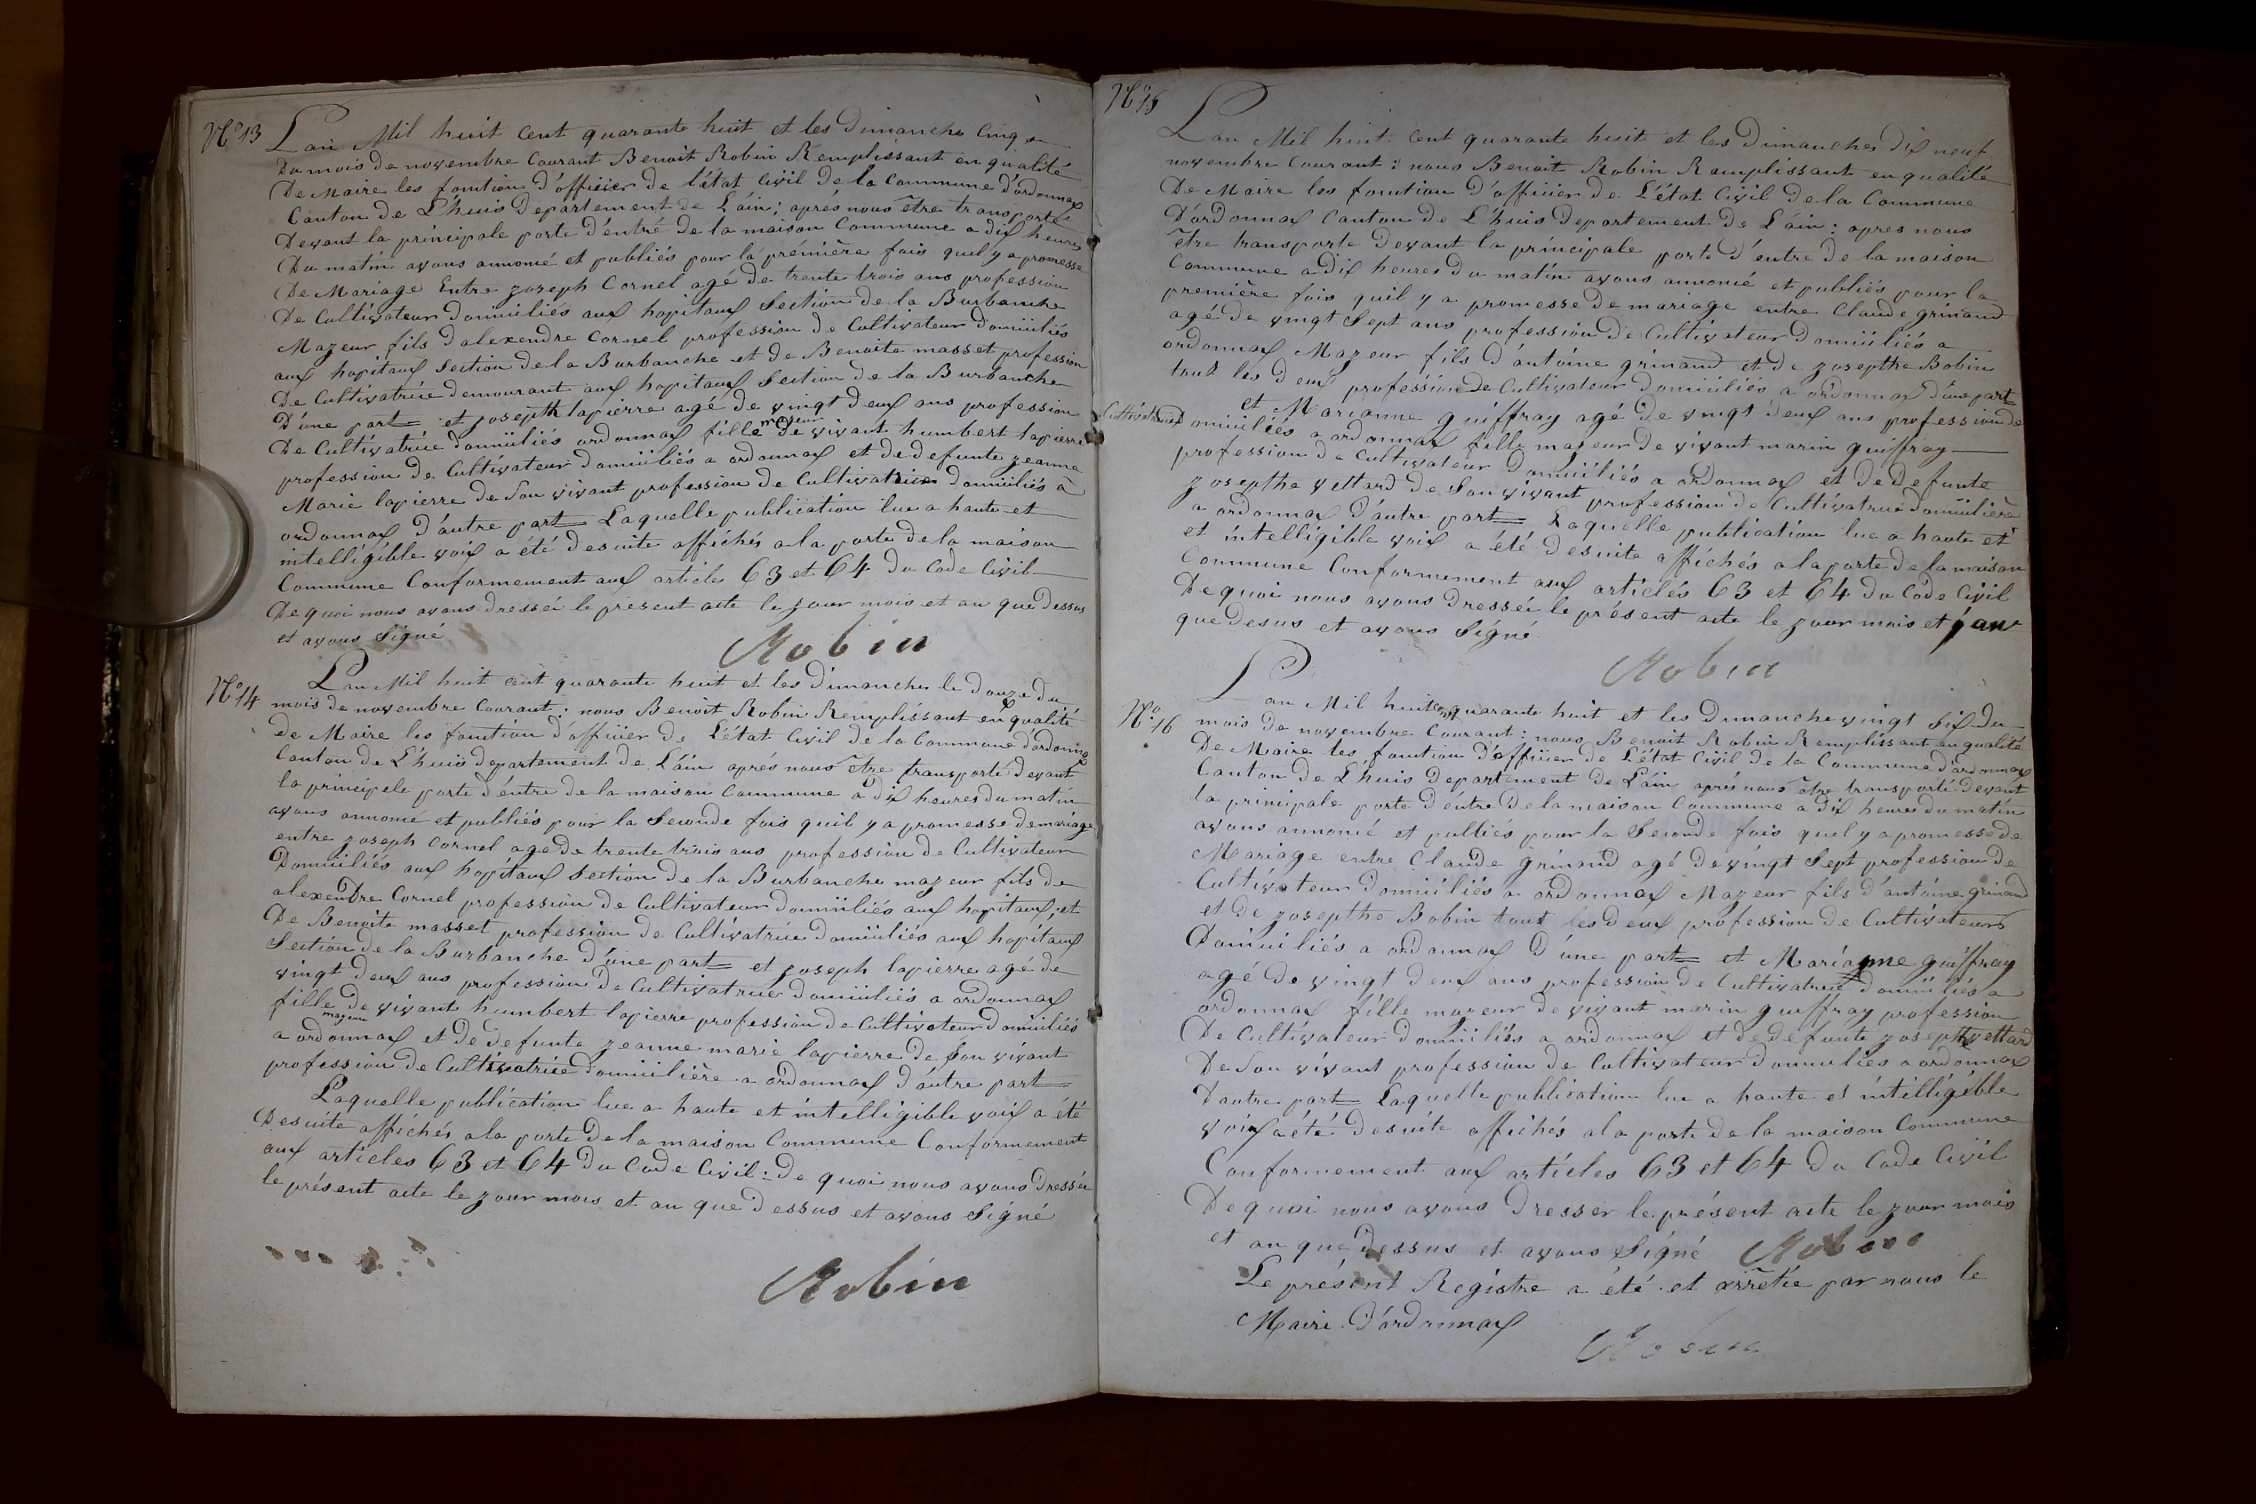 N° 13
Lan Mil huit cent quarante huit et les dimanche cinq
Du mois de novembre Courant Benoit Robin Remplissant en qualité
De Maire les fonction d'officier de l'état Civil de la Commune d'ordonnax
Canton de L'huis Departement de Láin; apres nous être transporté
Devant la principale porte d'éntré de la maison Commune a dix heures
Du matin avons annoncé et publiés pour la première fois quil y a promesse
De Mariage Entre zoseph Cornel agé de trente trois ans profession
De Cultivateur domiciliés aux hopitaux Section de la Burbanche
Mazeur fils d'alexendre Cornel profession de Cultivateur domiciliés
aux hopitaux Section de la Burbanche et de Benoite masset profession
De Cultivatrice demourant aux hopitaux Section de la Burbanche
D'une part et josepth lapierre agé de vingt deux ans profession
mazeur
De Cultivatrice domiciliés ordonnax fille de vivant humbert lapierre
profession de Cultivateur domiciliés a ordonnax et de defunte zeanne
Marie lapierre de Son vivant profession de Cultivatrice domiciliés à
ordonnax d'autre part Laquelle publication lue a haute et
intelligible voix a été desuite affichés a la porte de la maison
Commune Conformement aux article 63 et 64 du Code Civil
De quoi nous avons dresséi le present acte le jour mois et an que dessus
et avons Signé
Robin
N° 14
Lan Mil huit cent quarante huit et les dimanches le douze du
mois de novembre Courant: nous Benoit Robin Remplissant en qualité
de Maire les fonction d'officier de L'état Civil de la Commune d'ordonnax
Canton de L'huis departement de Láin aprés nous être transporté devant
la principele porte d'éntre de la maison Commune a dix heures du matin
avons annoncé et publiés pour la Seconde fois quil y a promesse de mariage
entre zoseph Cornel age de trente trois ans profession de Cultivateur
Domiciliés aux hopitaux Section de la Burbanche mazeur fils de
alexendre Cornel profession de Cultivateur domiciliés aux hopitaux et
De Benoite masset profession de Cultivatrice domiciliés aux hopitaux
Section de la Burbanche d'une part et zoseph lapierre agé de
vingt deux ans profession de Cultivatrice domiciliés a ordonnax
fille de vivant humbert lapierre profession de Cultivateur domiciliés
mazeur
a ordonnax et de defunte zeanne marie lapierre de Son vivant
profession de Cultivatrice domicilière a ordonnax d'áutre part
Laquelle publication lue a haute et intelligible voix a été
Desuite affichés a la porte de la maison Commune Conformement
aux articles 63 et 64 du Code Civil: de quoi nous avons dresséi
le présent acte le zour mois et an que dessus et avons Signé
Robin
N° 15
Lan Mil huit cent quarante huit et les Dimanches dix neuf
novembre Courant: nous Benoit Robin Remplissant en qualité
De Maire les fonction d'officier de L'état Civil de la Commune
D'ordonnax Canton de L'huis departement de Láin: apres nous
être transporte devant la principale porte d'éntre de la maison
Commune a dix heures du matin avons annoncé et publiés pour la
première fois quil y a promesse de mariage entre Claude grinand
agé de vingt Sept ans profession de Cultivateur domiciliés a
ordonnax Mazeur fils d'antoine grinand et de zosepthe Bobin
tout les deux profession de Cultivateur domiciliés a ordonnax d'une part
et Marianne guiffray agé de vingt deux ans profession de
Cultivatrice domiciliés a ordonnax fille mazeur de vivant marin guiffray
profession de Cultivateur domiciliés a ordonnax et de defunte
zosepthe vettard de Son vivant profession de Cultivatrice domicilière
a ordonnax d'áutre part Laquelle publication lue a haute et
et intelligible voix a été desuite affichés a la porte de la maison
Commune Conformement aux articles 63 et 64 du Code Civil
De quoi nous avons dresséi le présent acte le zour mois et j'an
que desus et avons Signé
Robin
N° 16
Lan Mil huit cent quarante huit et les Dimanche vingt Six du
mois de novembre Courant: nous Benoit Robin Remplissant en qualité
De Maire les fonction d'officier de L'état Civil de la Commune d'ordonnax
Canton de L'huis Departement de Láin aprés nous être transporté devant
la principale porte d'éntre de la maison Commune a dix heures du matin
avons annoncé et publiés pour la Seconde fois quil y a promesse de
Mariage entre Claude grinand agé de vingt Sept profession de
Cultivateur domiciliés a ordonnax Mazeur fils d'antoine grinand
et de zosepthe Bobin tout les deux profession de Cultivateurs
Domiciliés a ordonnax D'une part et Marianne guiffray
agé de vingt deux ans profession de Cultivatrice domiciliés a
ordonnax fille mazeur de vivant marin guiffray profession
De Cultivateur domiciliés a ordonnax et de défunte zosepthe vettard
De Son vivant profession de Cultivateur domiciliés a ordonnax
D'autre part Laquelle publication lue a haute et intelligible
voix a été desuite affichés a la porte de la maison Commune
Conformement aux articles 63 et 64 du Code Civil
De quoi nous avons dresser le présent acte le zour mois
et an que dessus et avons Signé Robin
Le présent Registre a été et arrêtée par nous le
Maire D'ordonnax
Robin